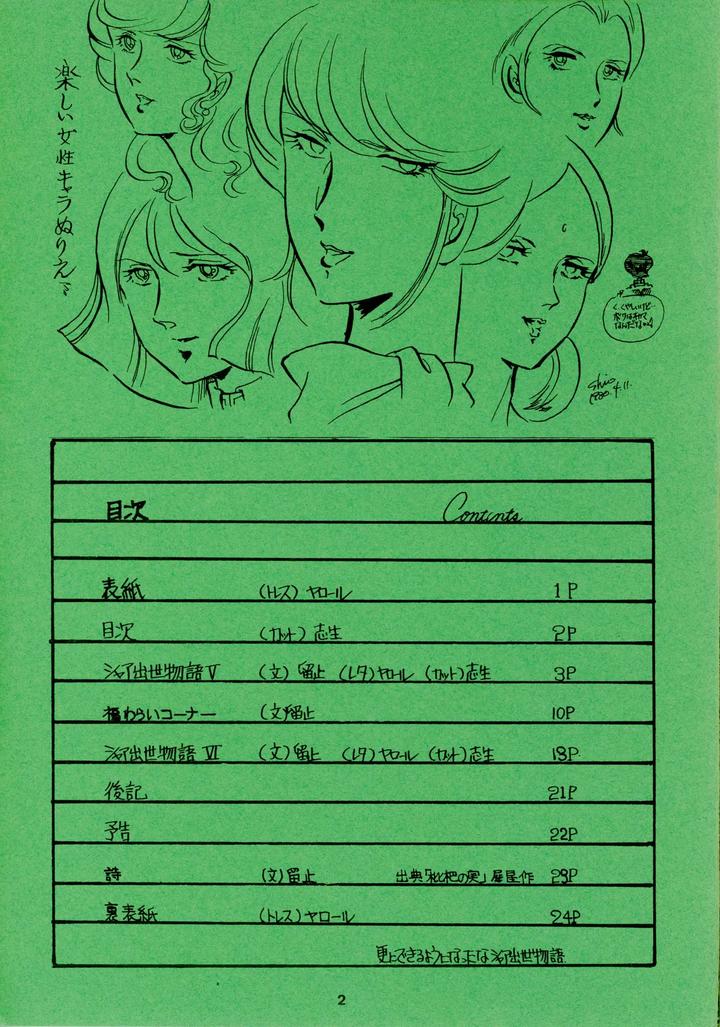 楽しい女性キャラぬりえ
く、くやしいけど…
Shio
1980.4.11.
目次 Contents
表紙 (トレス) ヤロール 1P
目次 (カット) 志生 2P
シャア出世物語Ⅴ (文) 留止 (レタ) ヤロール (カット) 志生 3P
福わらいコーナー (文) 留止 10P
シャア出世物語Ⅵ (文) 留止 (レタ) ヤロール (カット) 志生 18P
後記 21P
予告 22P
詩 (文) 留止 出典「枇杷の実」 作 23P
裏表紙 (トレス) ヤロール 24P
シャア出世物語
2